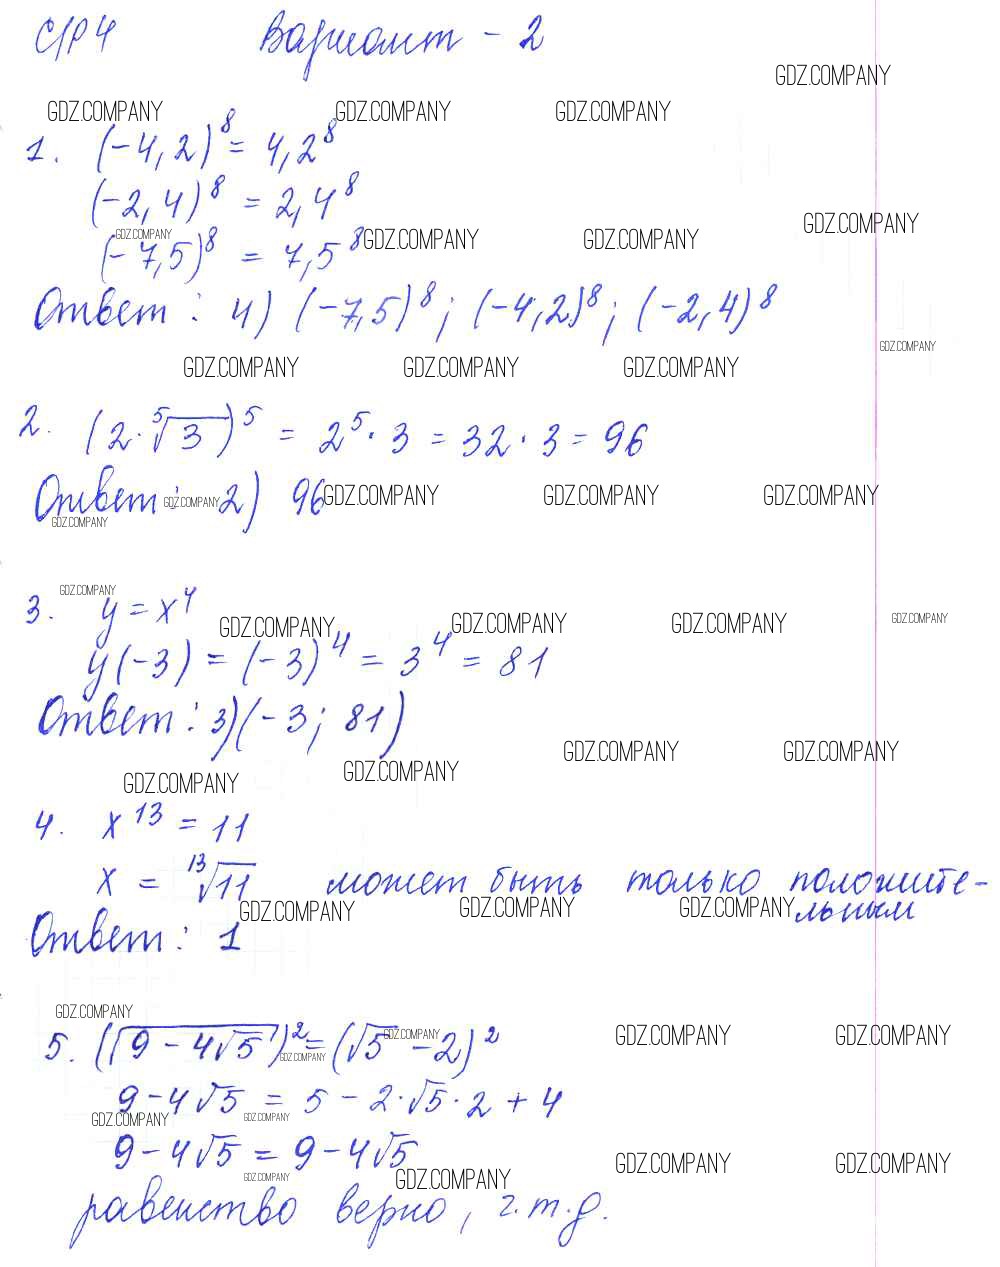 С/Р 4 Вариант - 2
GDZ.COMPANY
GDZ.COMPANY GDZ.COMPANY GDZ.COMPANY
1. (-4,2)⁸ = 4,2⁸
(-2,4)⁸ = 2,4⁸
GDZ.COMPANY
GDZ.COMPANY GDZ.COMPANY GDZ.COMPANY
(-7,5)⁸ = 7,5⁸
Ответ: 4) (-7,5)⁸; (-4,2)⁸; (-2,4)⁸
GDZ.COMPANY
GDZ.COMPANY GDZ.COMPANY GDZ.COMPANY
2. (2·⁵√3)⁵ = 2⁵·3 = 32·3 = 96
Ответ: 2) 96
GDZ.COMPANY GDZ.COMPANY GDZ.COMPANY GDZ.COMPANY
GDZ.COMPANY
GDZ.COMPANY
3. y = x⁴
GDZ.COMPANY GDZ.COMPANY GDZ.COMPANY GDZ.COMPANY
y(-3) = (-3)⁴ = 3⁴ = 81
Ответ: 3) (-3; 81)
GDZ.COMPANY GDZ.COMPANY
GDZ.COMPANY GDZ.COMPANY
4. x¹³ = 11
x = ¹³√11 может быть только положите-
льным
GDZ.COMPANY GDZ.COMPANY GDZ.COMPANY
Ответ: 1
GDZ.COMPANY
GDZ.COMPANY GDZ.COMPANY GDZ.COMPANY
5. (√(9-4√5))² = (√5-2)²
GDZ.COMPANY
9-4√5 = 5-2·√5·2+4
GDZ.COMPANY GDZ.COMPANY
9-4√5 = 9-4√5
GDZ.COMPANY GDZ.COMPANY GDZ.COMPANY GDZ.COMPANY
равенство верно, ч.т.д.